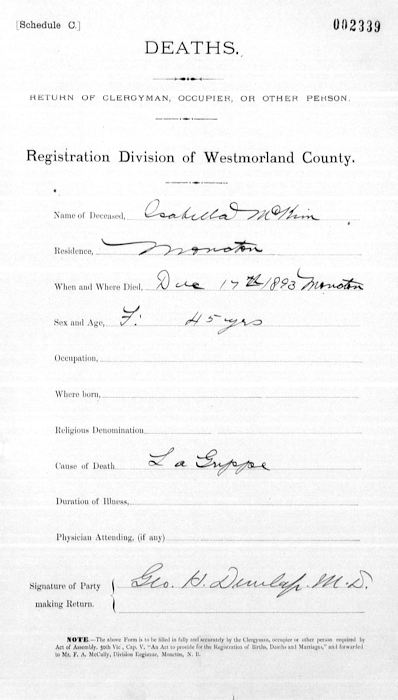 [Schedule C.]
002339
DEATHS.
RETURN OF CLERGYMAN, OCCUPIER, OR OTHER PERSON.
Registration Division of Westmorland County.
Name of Deceased, Isabella McKim
Residence, Moncton
When and Where Died, Dec 17th 1893 Moncton
Sex and Age, F. 45 yrs
Occupation,
Where born,
Religious Denomination
Cause of Death La Grippe
Duration of Illness,
Physician Attending, (if any)
Signature of Party making Return. { Geo. H. Dunlap. M.D.
NOTE.—The above Form is to be filled in fully and accurately by the Clergyman, occupier or other person required by
Act of Assembly, 50th Vic., Cap. V. "An Act to provide for the Registration of Births, Deaths and Marriages," and forwarded
to Mr. F. A. McCully, Division Registrar, Moncton, N. B.